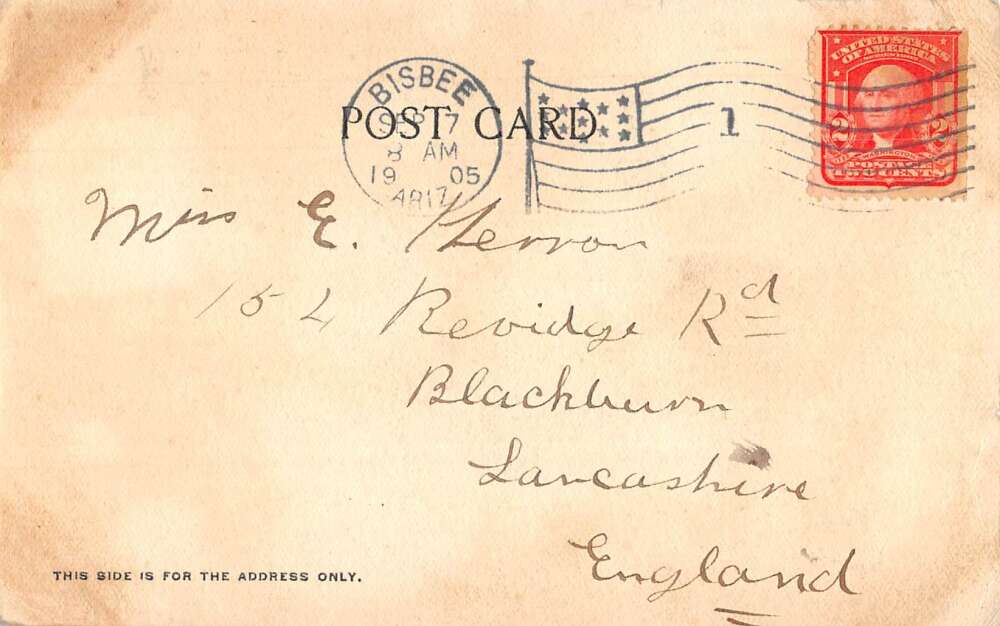 BISBEE
SEP 7
8 AM
19 05
ARIZ
1
UNITED STATES
OF AMERICA
2 2
WASHINGTON
POSTAGE
TWO CENTS
POST CARD
Miss E. Herron
152 Revidge Rd
Blackburn
Lancashire
England
THIS SIDE IS FOR THE ADDRESS ONLY.